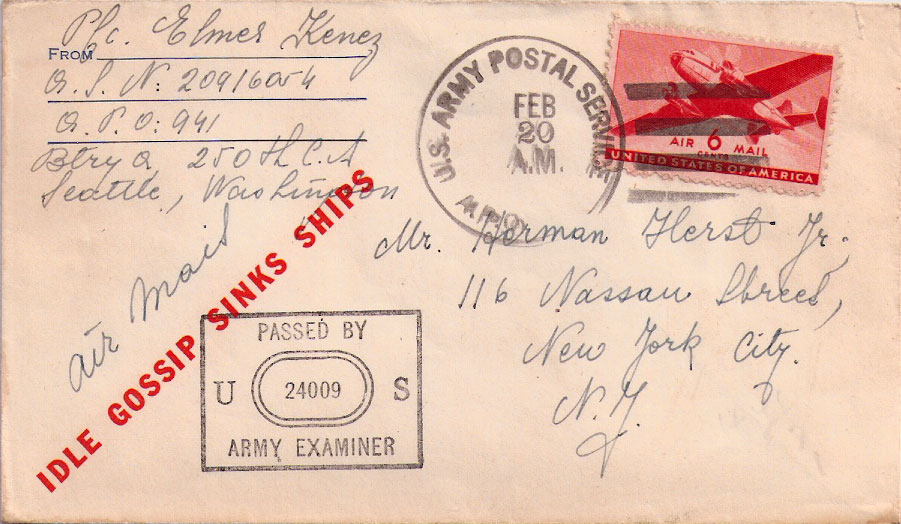 Pfc. Elmer Kenez
FROM
A. S. N: 20916054
A. P. O: 941
Btry A 250th C.A
Seattle, Washington
Air Mail
IDLE GOSSIP SINKS SHIPS
U.S. ARMY POSTAL SERVICE
FEB
20
A.M.
A.P.O.
AIR 6 MAIL
CENTS
UNITED STATES OF AMERICA
Mr. Herman Herst Jr.
116 Nassau Street,
New York City.
N.Y.
PASSED BY
U 24009 S
ARMY EXAMINER